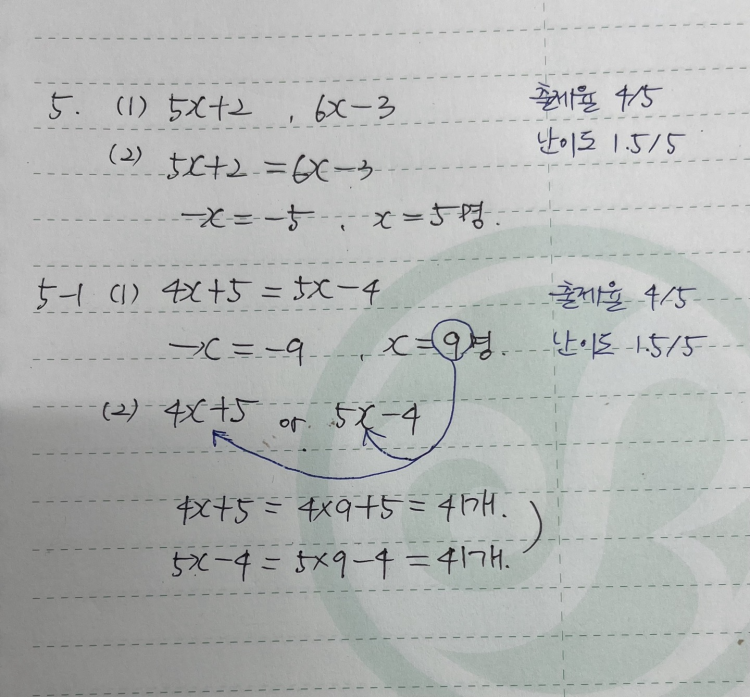 5. (1) 5x+2 , 6x-3 출제율 4/5
(2) 5x+2 = 6x-3 난이도 1.5/5
-x = -5 , x = 5명.
5-1 (1) 4x+5 = 5x-4 출제율 4/5
-x = -9 , x = 9명. 난이도 1.5/5
(2) 4x+5 or 5x-4
4x+5 = 4×9+5 = 41개.
5x-4 = 5×9-4 = 41개.